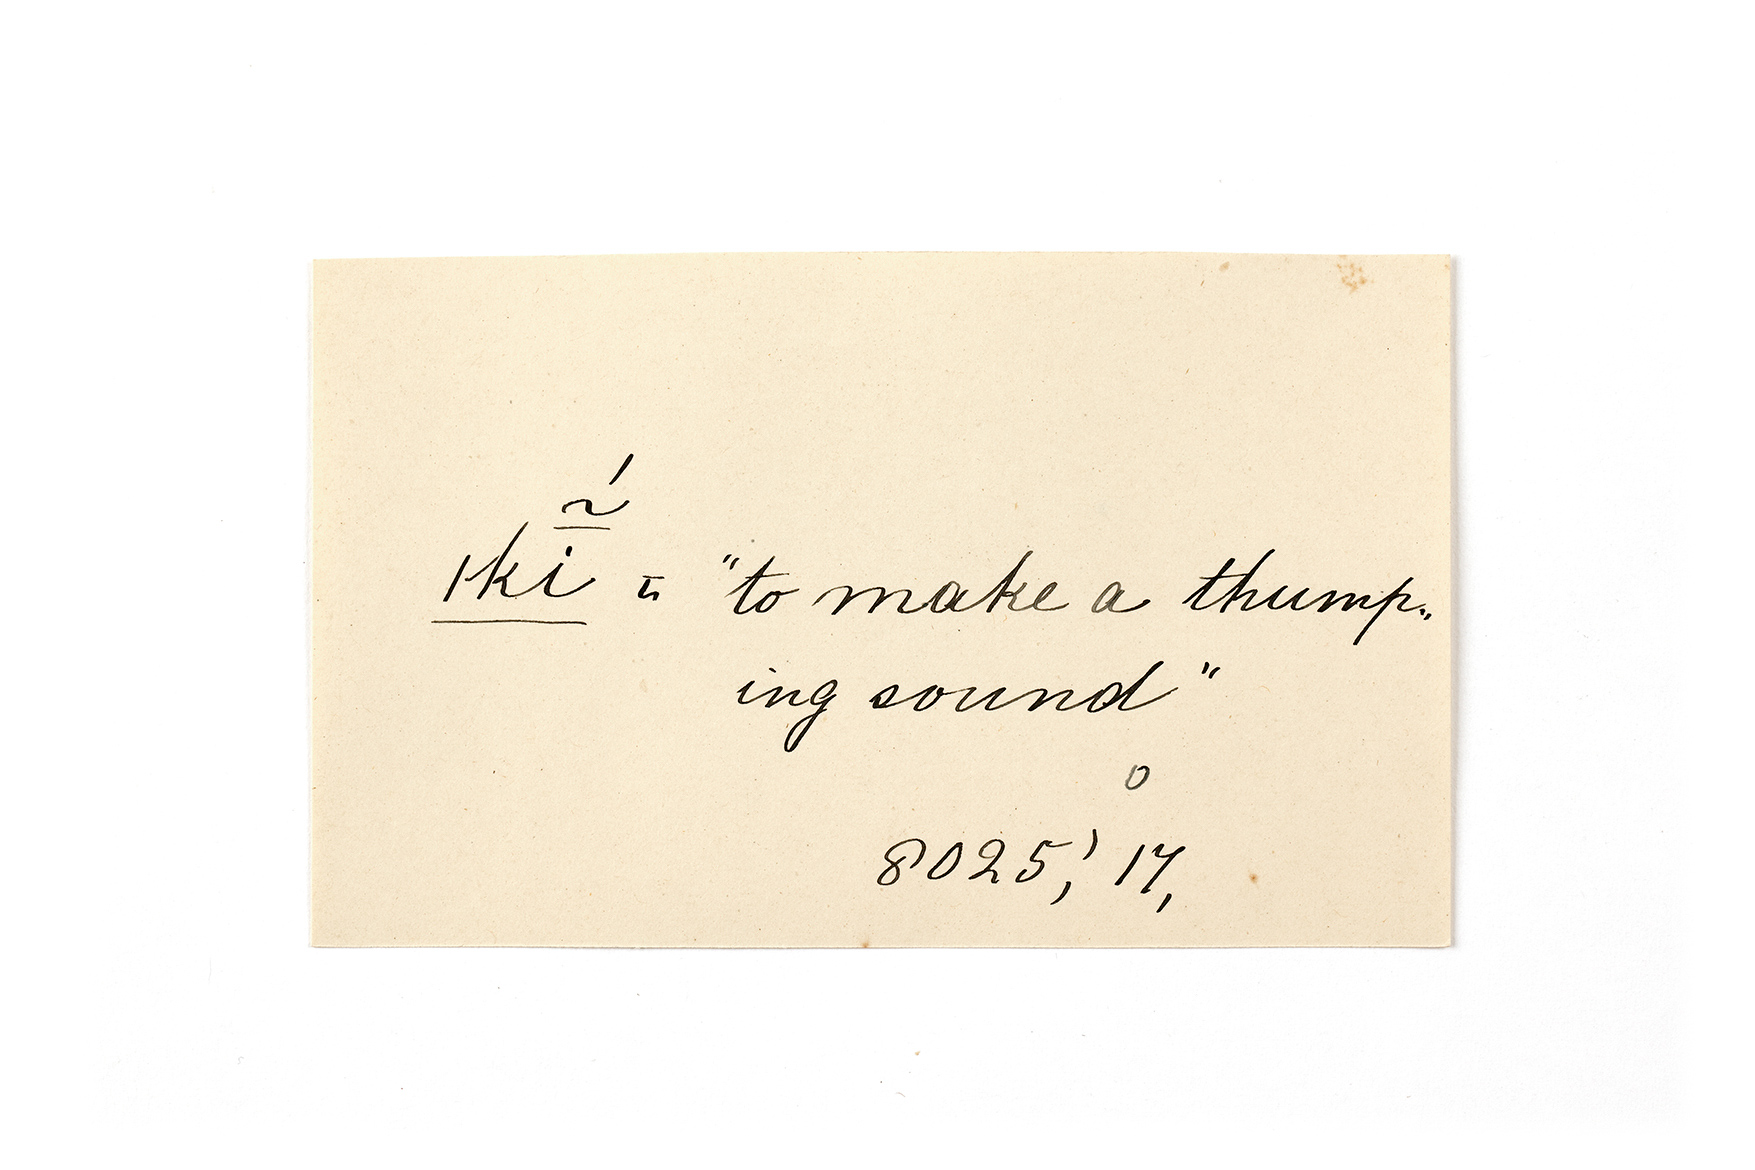 ıkḭ̃́ = "to make a thump=
ing sound"
8025,' 17,